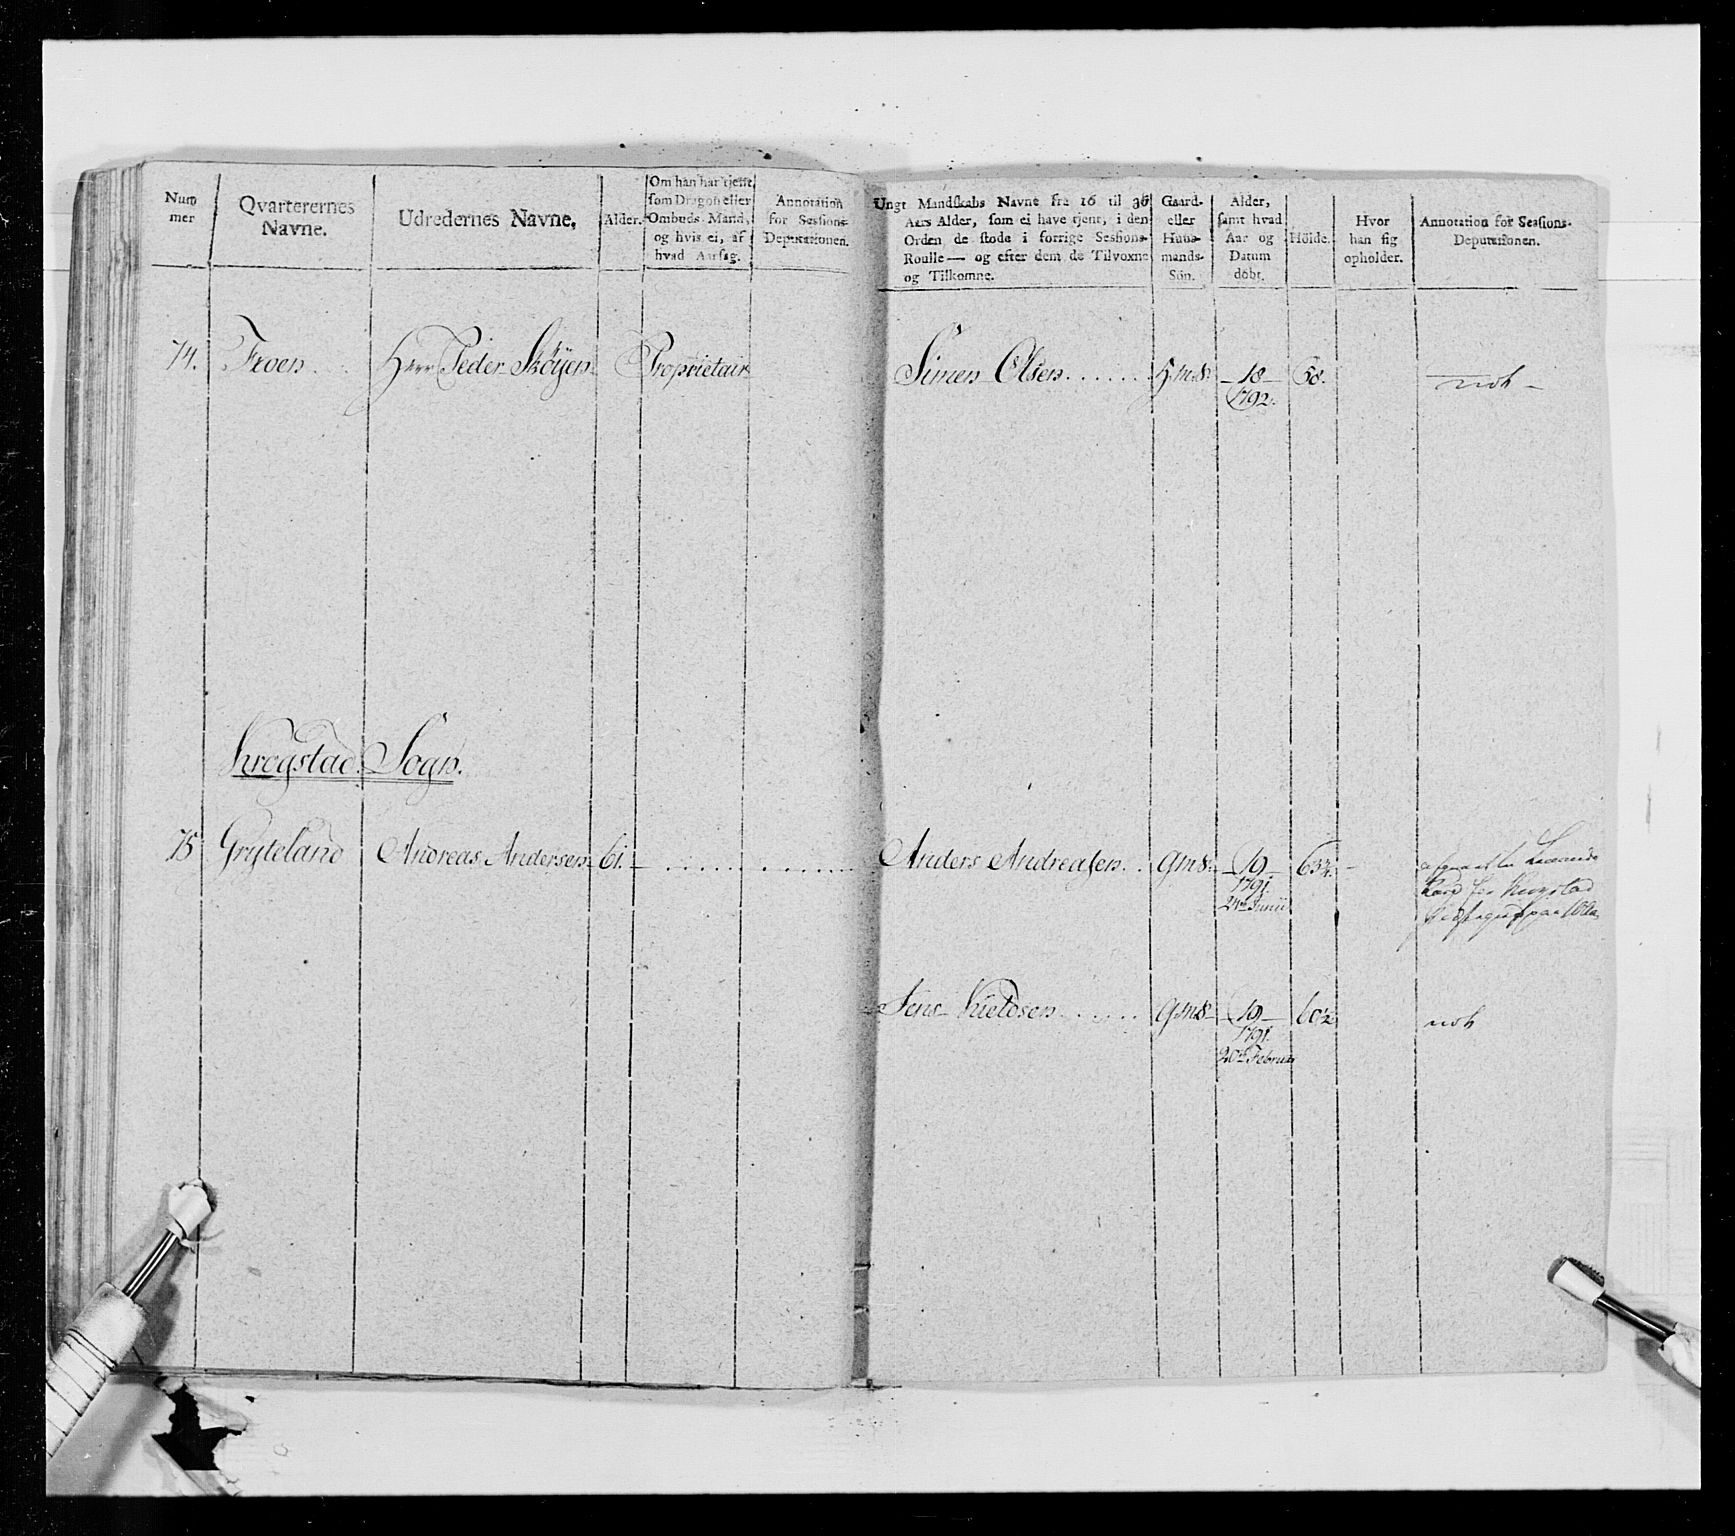 Num
mer
Qvarterernes
Navne.
Udredernes Navne.
Alder.
Om han har tjent
som Dragon eller
Ombuds-Mand,
og hvis ei, af
hvad Aarsag.
Annotation
for Sessions-
Deputationen.
Ungt Mandskabs Navne fra 16 til 36
Aars Alder, som ei have tjent, i den
Orden de stode i forrige Sessions-
Roulle — og efter dem de Tilvoxne
og Tilkomne.
Gaard-
eller
Huus-
mands-
Søn.
Alder,
samt hvad
Aar og
Datum
døbt.
Höide.
Hvor
han sig
opholder.
Annotation for Sessions-
Deputationen.
74. Froen. Herr Peder Sköyen Proprietair Simen Olsen. H.m.S. 18 58. noh
1792.
Krogstad Sogn.
75 Gryteland Andreas Andersen 61. Anders Andreasen. G.m.S. 19 63¼
1791.
24de Junii
Jens Kieldsen G.m.S. 19 60½ noh
1791.
20de Februar